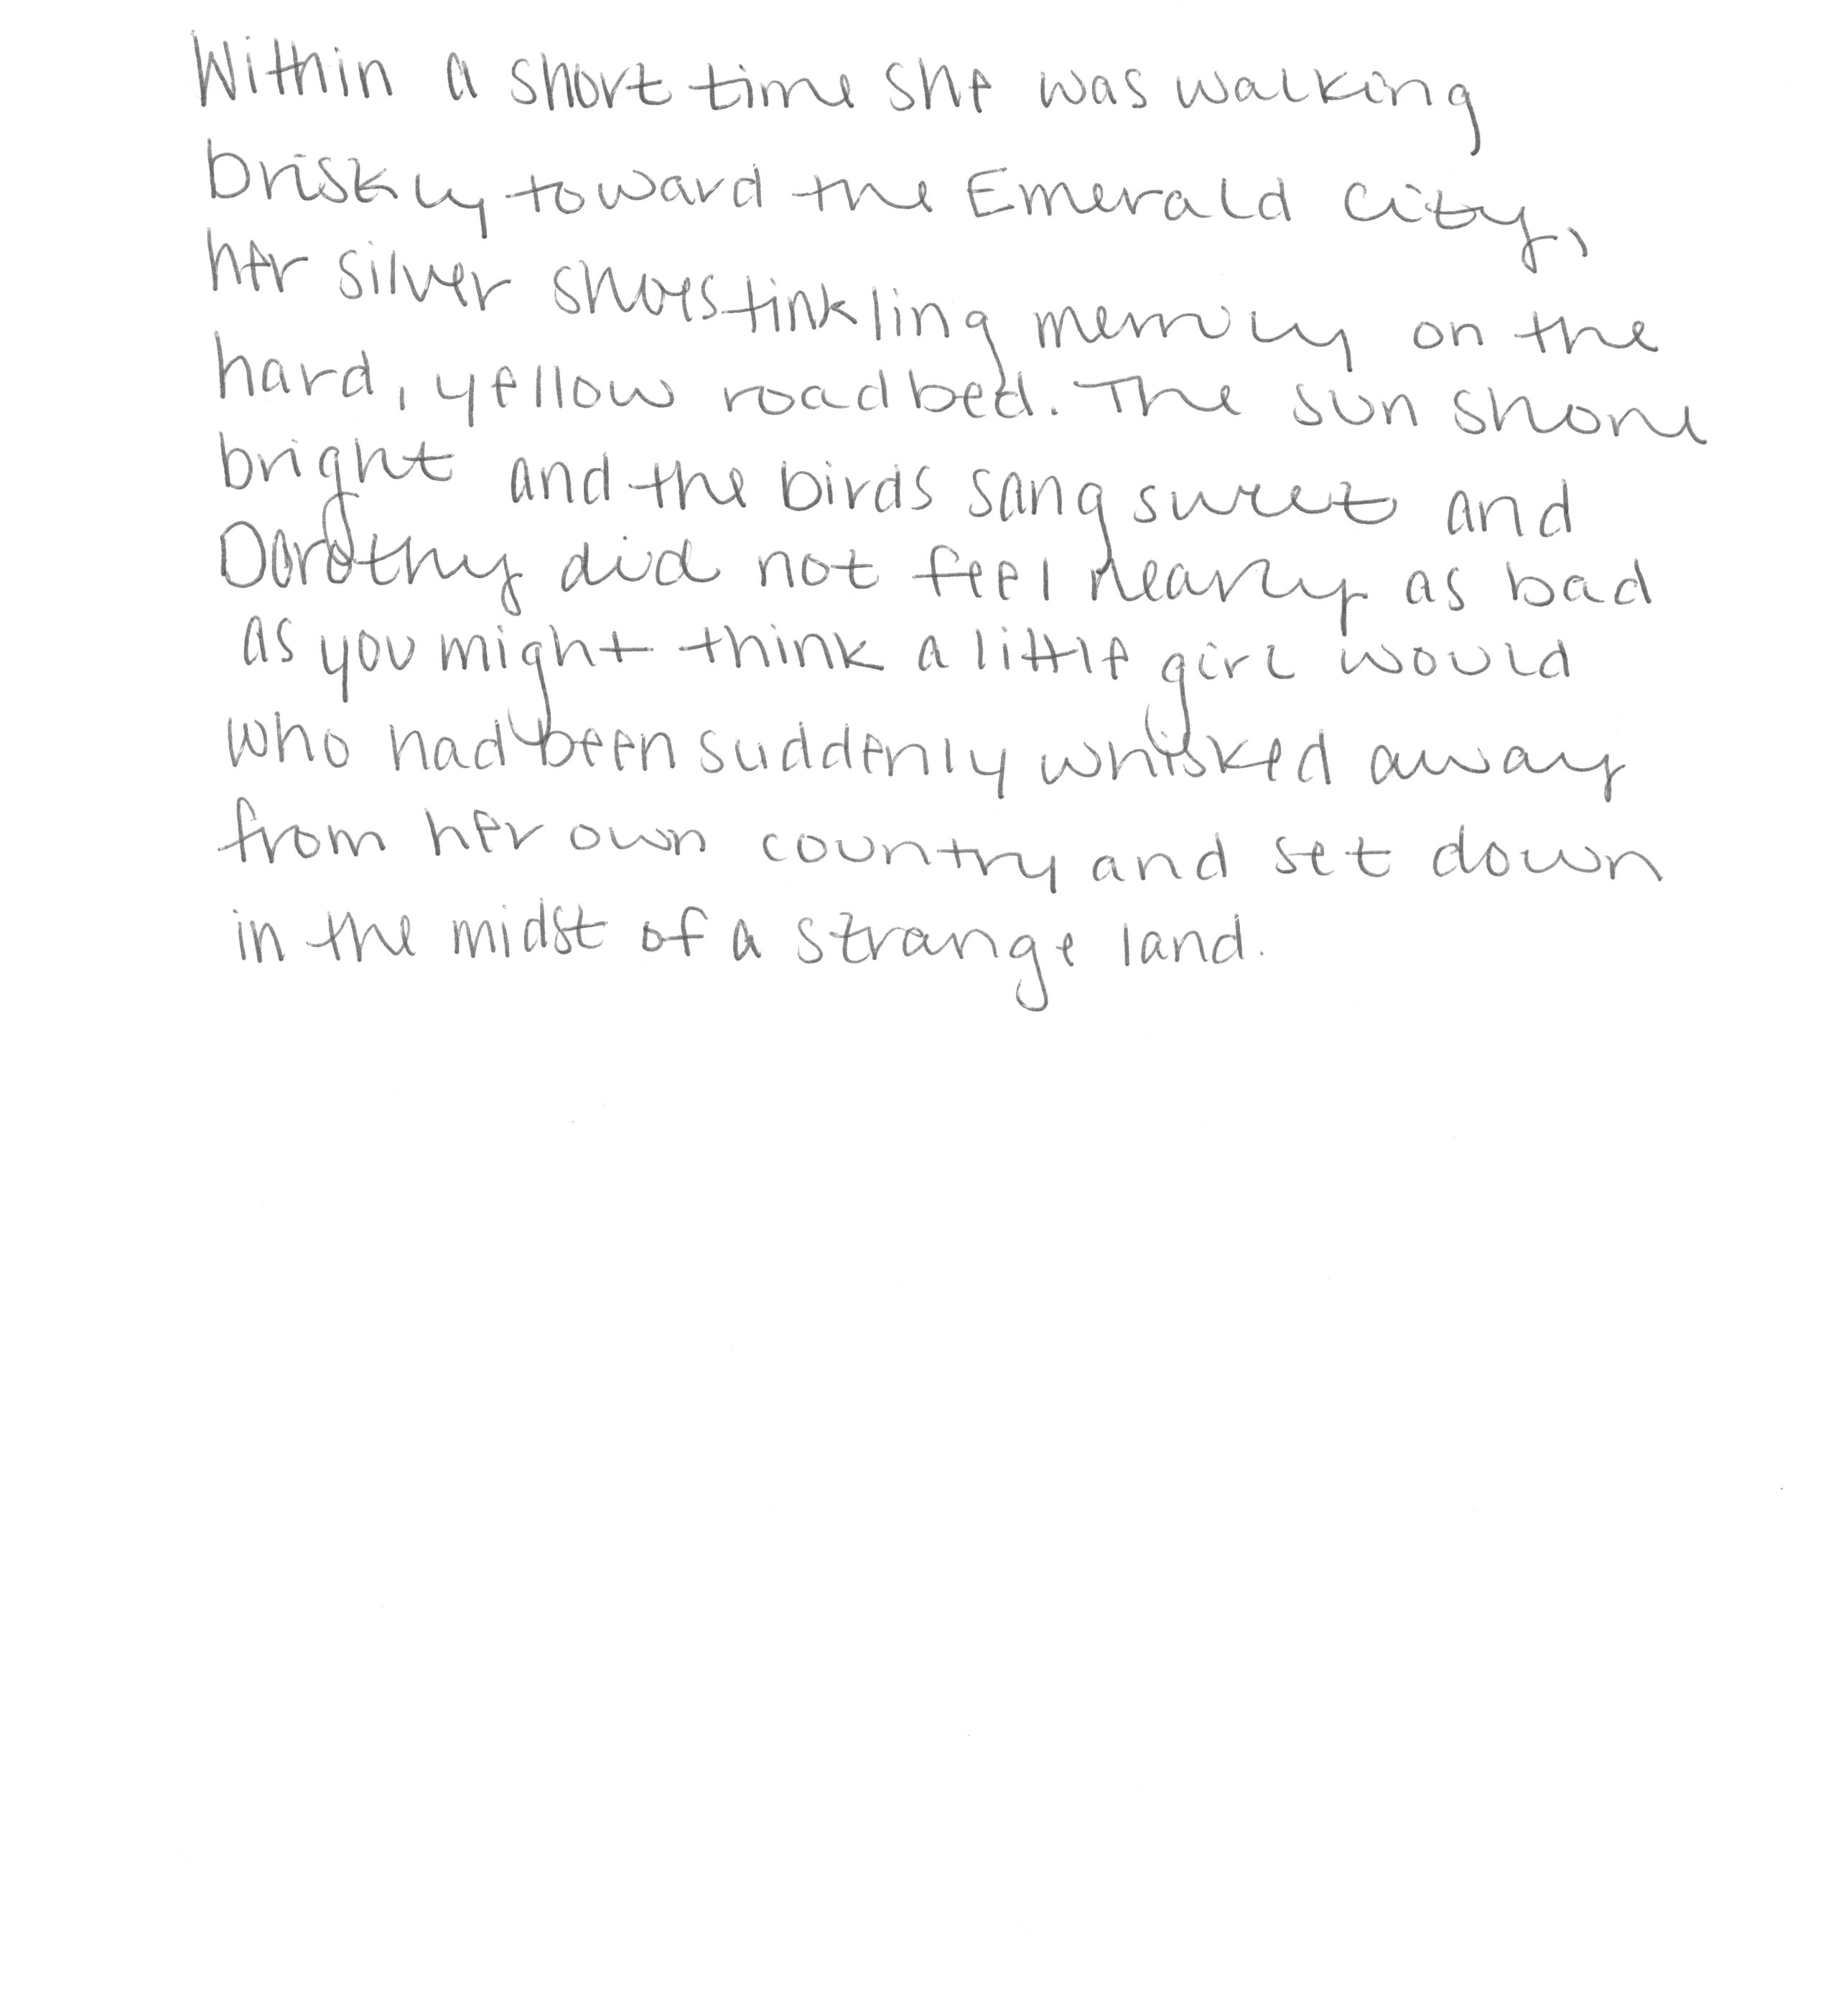 Within a short time she was walking
briskly toward the Emerald City,
her silver shoes tinkling merrily on the
hard, yellow roadbed. The sun shone
bright and the birds sang sweet and
Dorothy did not feel nearly as bad
as you might think a little girl would
who had been suddenly whisked away
from her own country and set down
in the midst of a strange land.